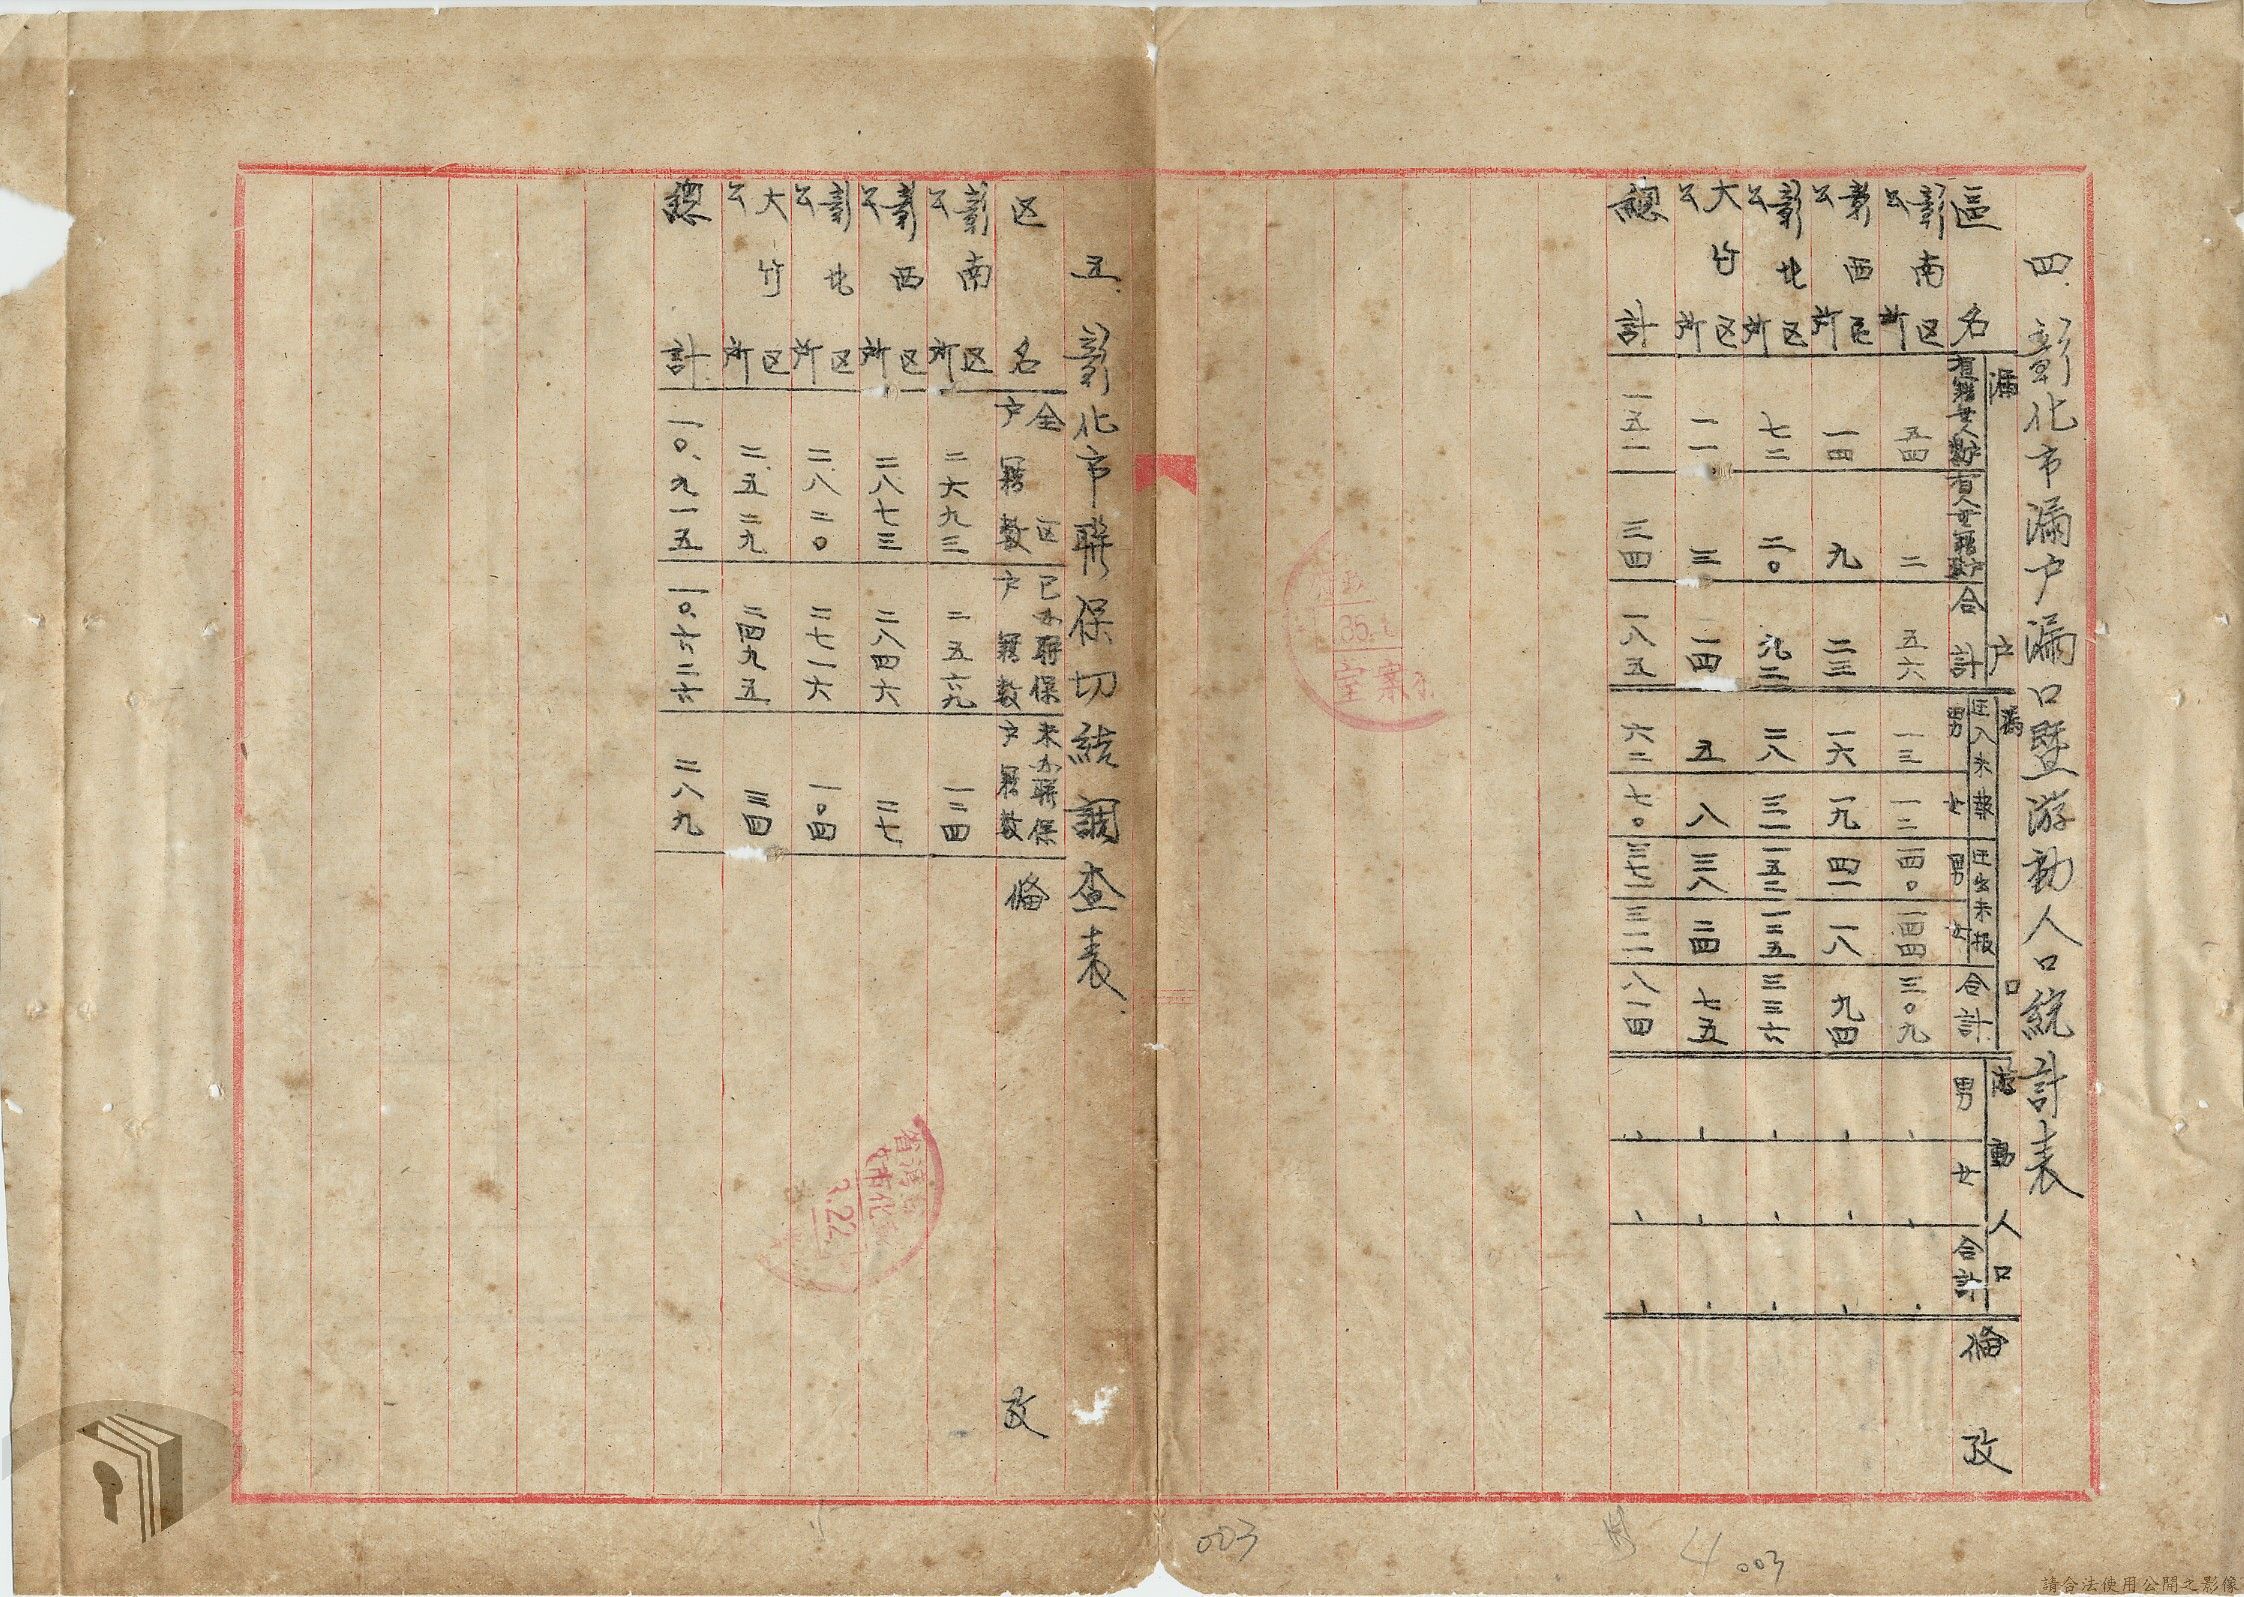 四.彰化市漏户漏口暨游動人口統計表
區名 漏户 有籍無人戶數 有人無籍戶數 合計 漏口 迁入未報 男 女 迁出未报 男 女 合計 流動人口 男 女 合計 備攷
彰南区公所 五四 二 五六 一三 一二 一四〇 一四四 三〇九
彰西区公所 一四 九 二三 一六 一九 四一 一八 九四
彰北区公所 七二 二〇 九二 二八 三一 一五二 一二五 三三六
大竹区公所 一一 三 一四 五 八 三八 二四 七五
總計 一五一 三四 一八五 六二 七〇 三七一 三一一 八一四
五.彰化市聯保切結調查表.
区名 全区户籍數 已办聯保户籍數 未办聯保户籍數 備攷
彰南区公所 二六九三 二五六九 一二四
彰西区公所 二八七三 二八四六 二七
彰北区公所 二.八二〇 二七一六 一〇四
大竹区公所 二.五二九 二四九五 三四
總計 一〇.九一五 一〇.六二六 二八九
室案
省灣
市化
2.22
003
4
003
請合法使用公開之影像